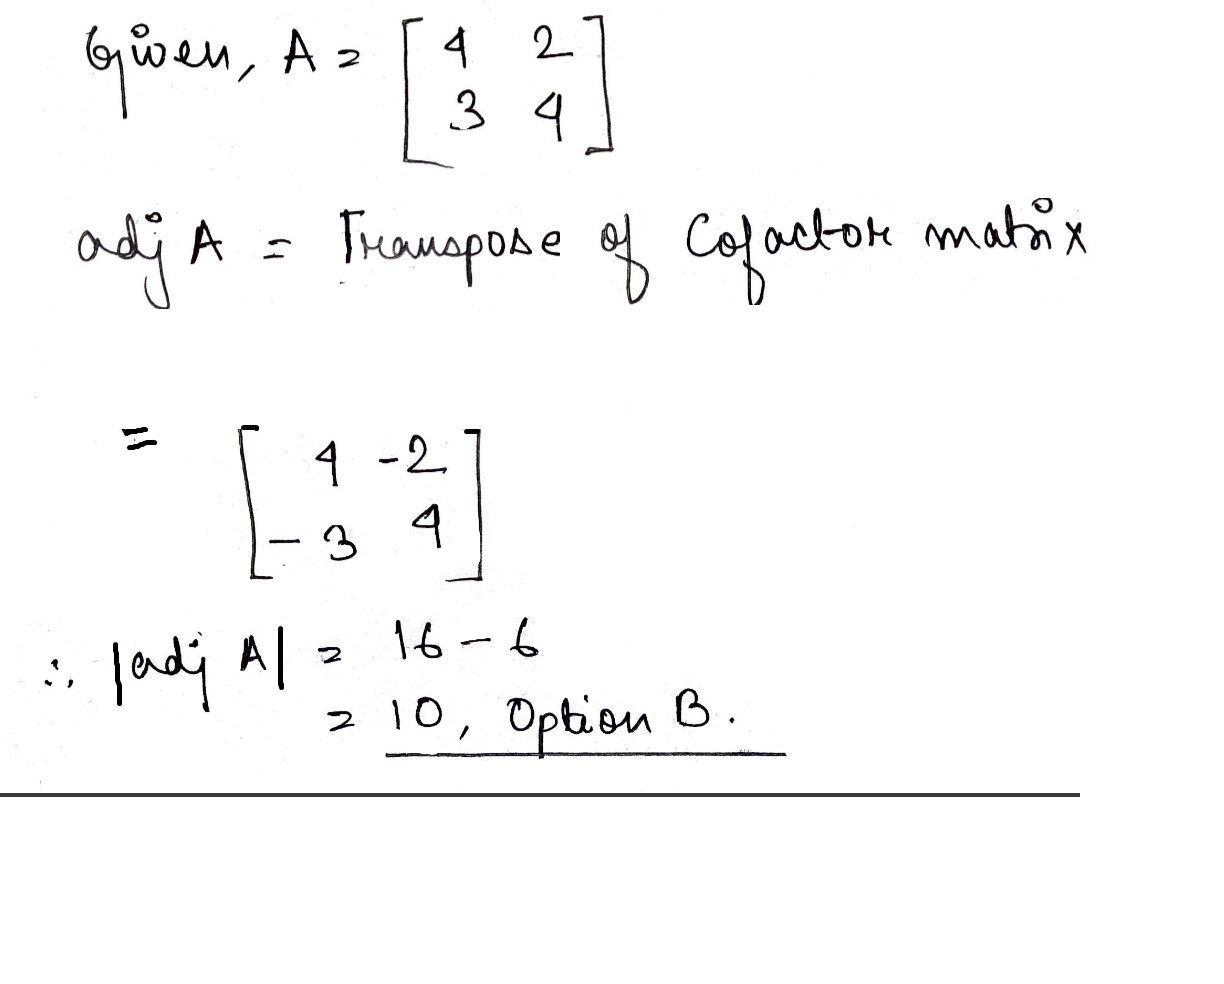 Given, A = [ 4 2
3 4 ]
adj A = Transpose of Cofactor matrix
= [ 4 -2
- 3 4 ]
∴ |adj A| = 16 - 6
= 10, Option B.